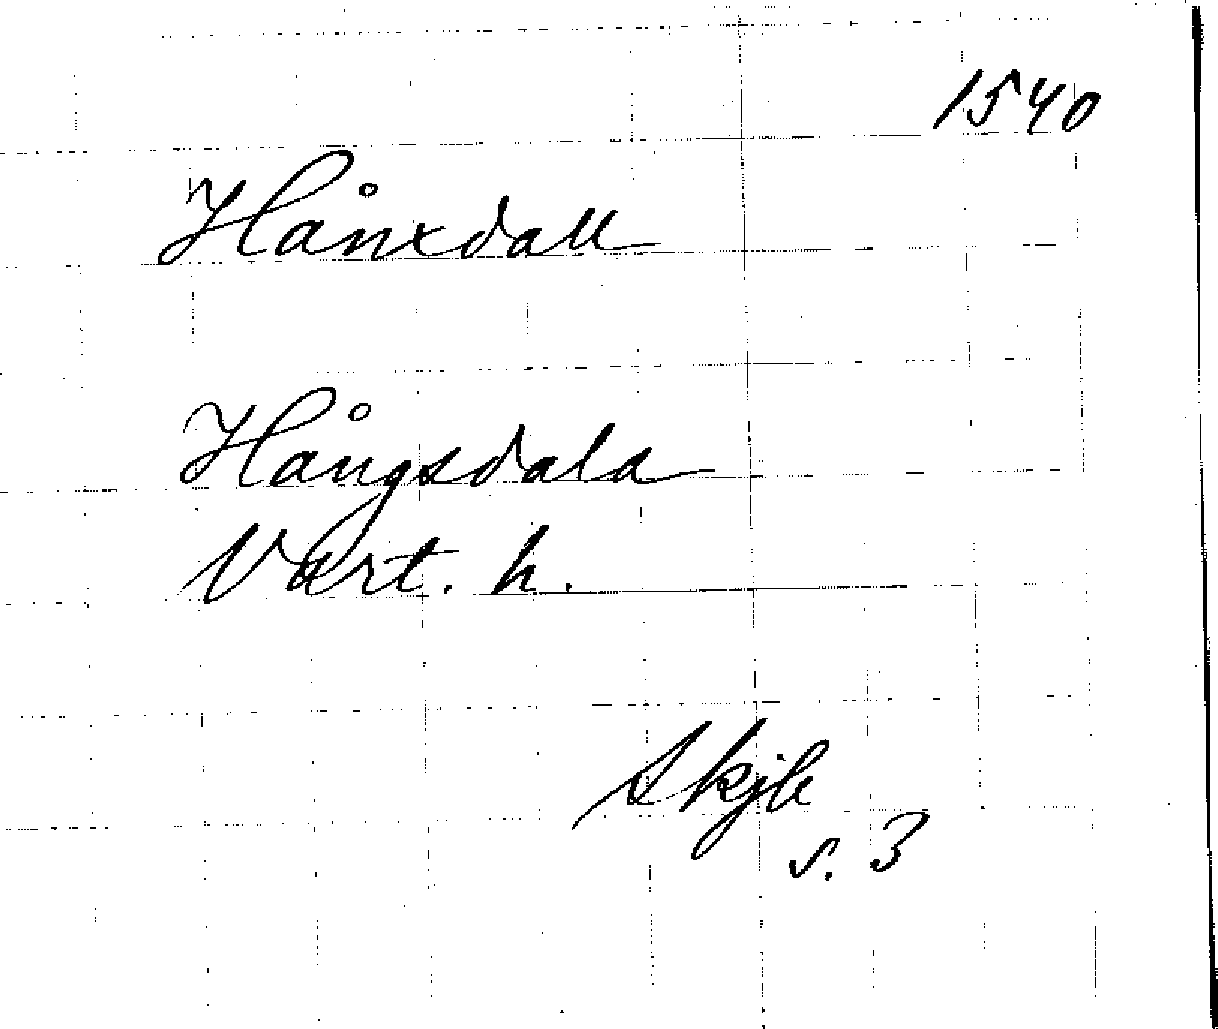 1540
Hånxdall
Hångsdala
Vart. h.
Skjb
s. 3